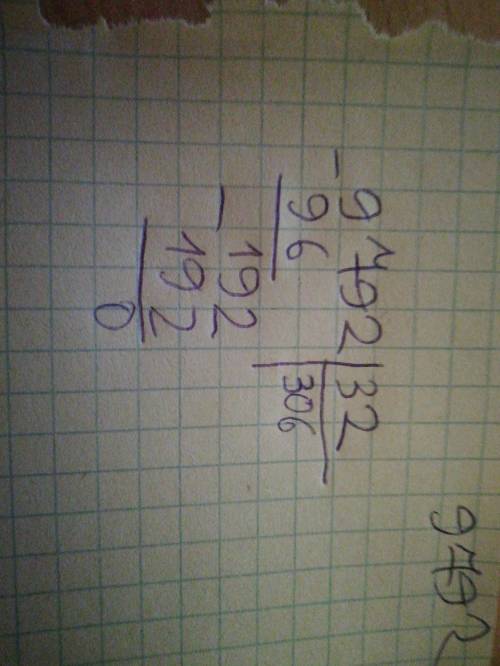 9792
-9792|32
96 306
- 192
192
0